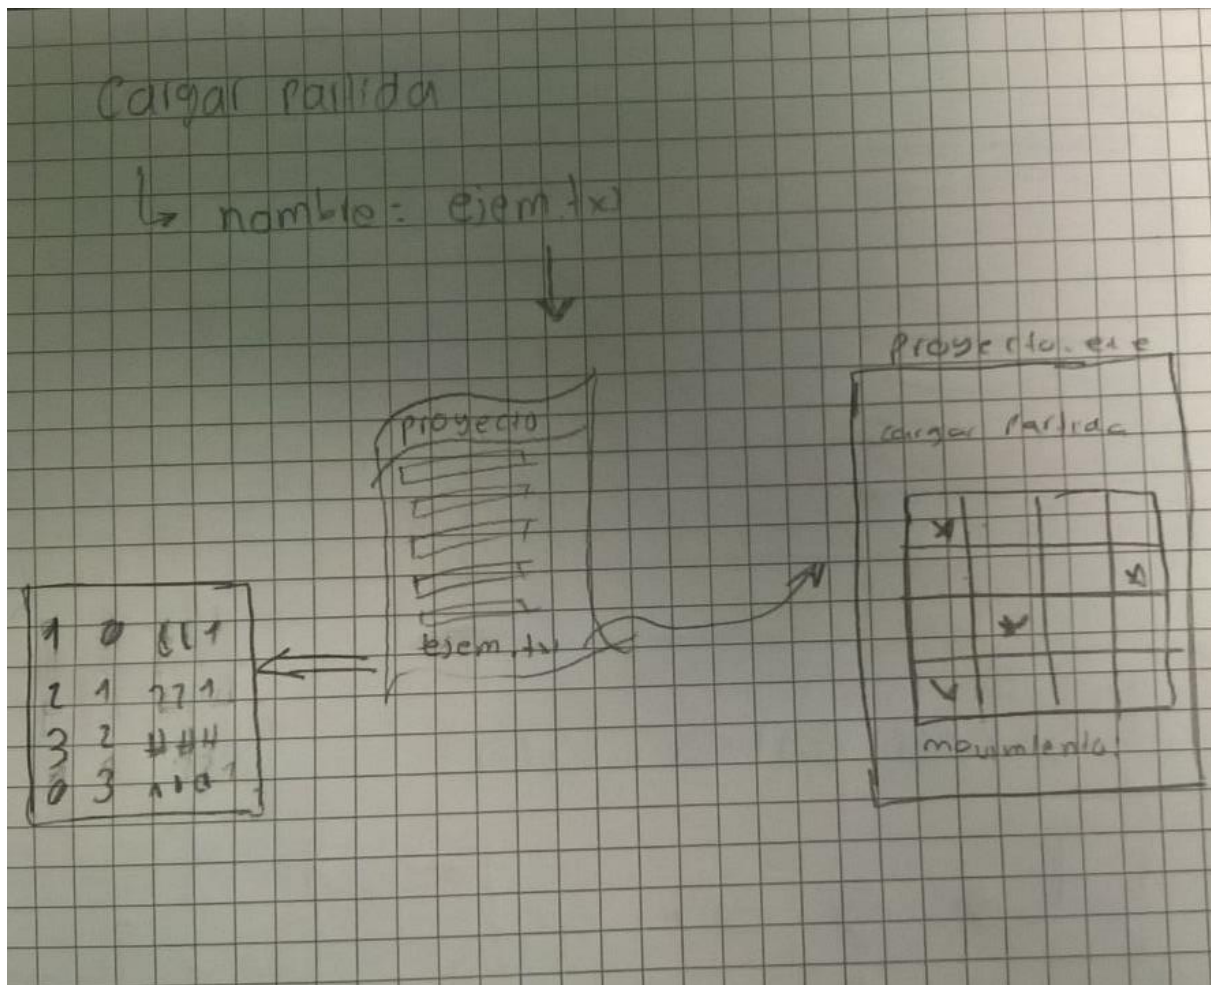 Cargar Partida
↳ nombre: ejem.txt
proyecto
ejem.txt
1 0
2 1 221
3 2 ###
0 3
Proyecto.exe
cargar Partida
movimiento